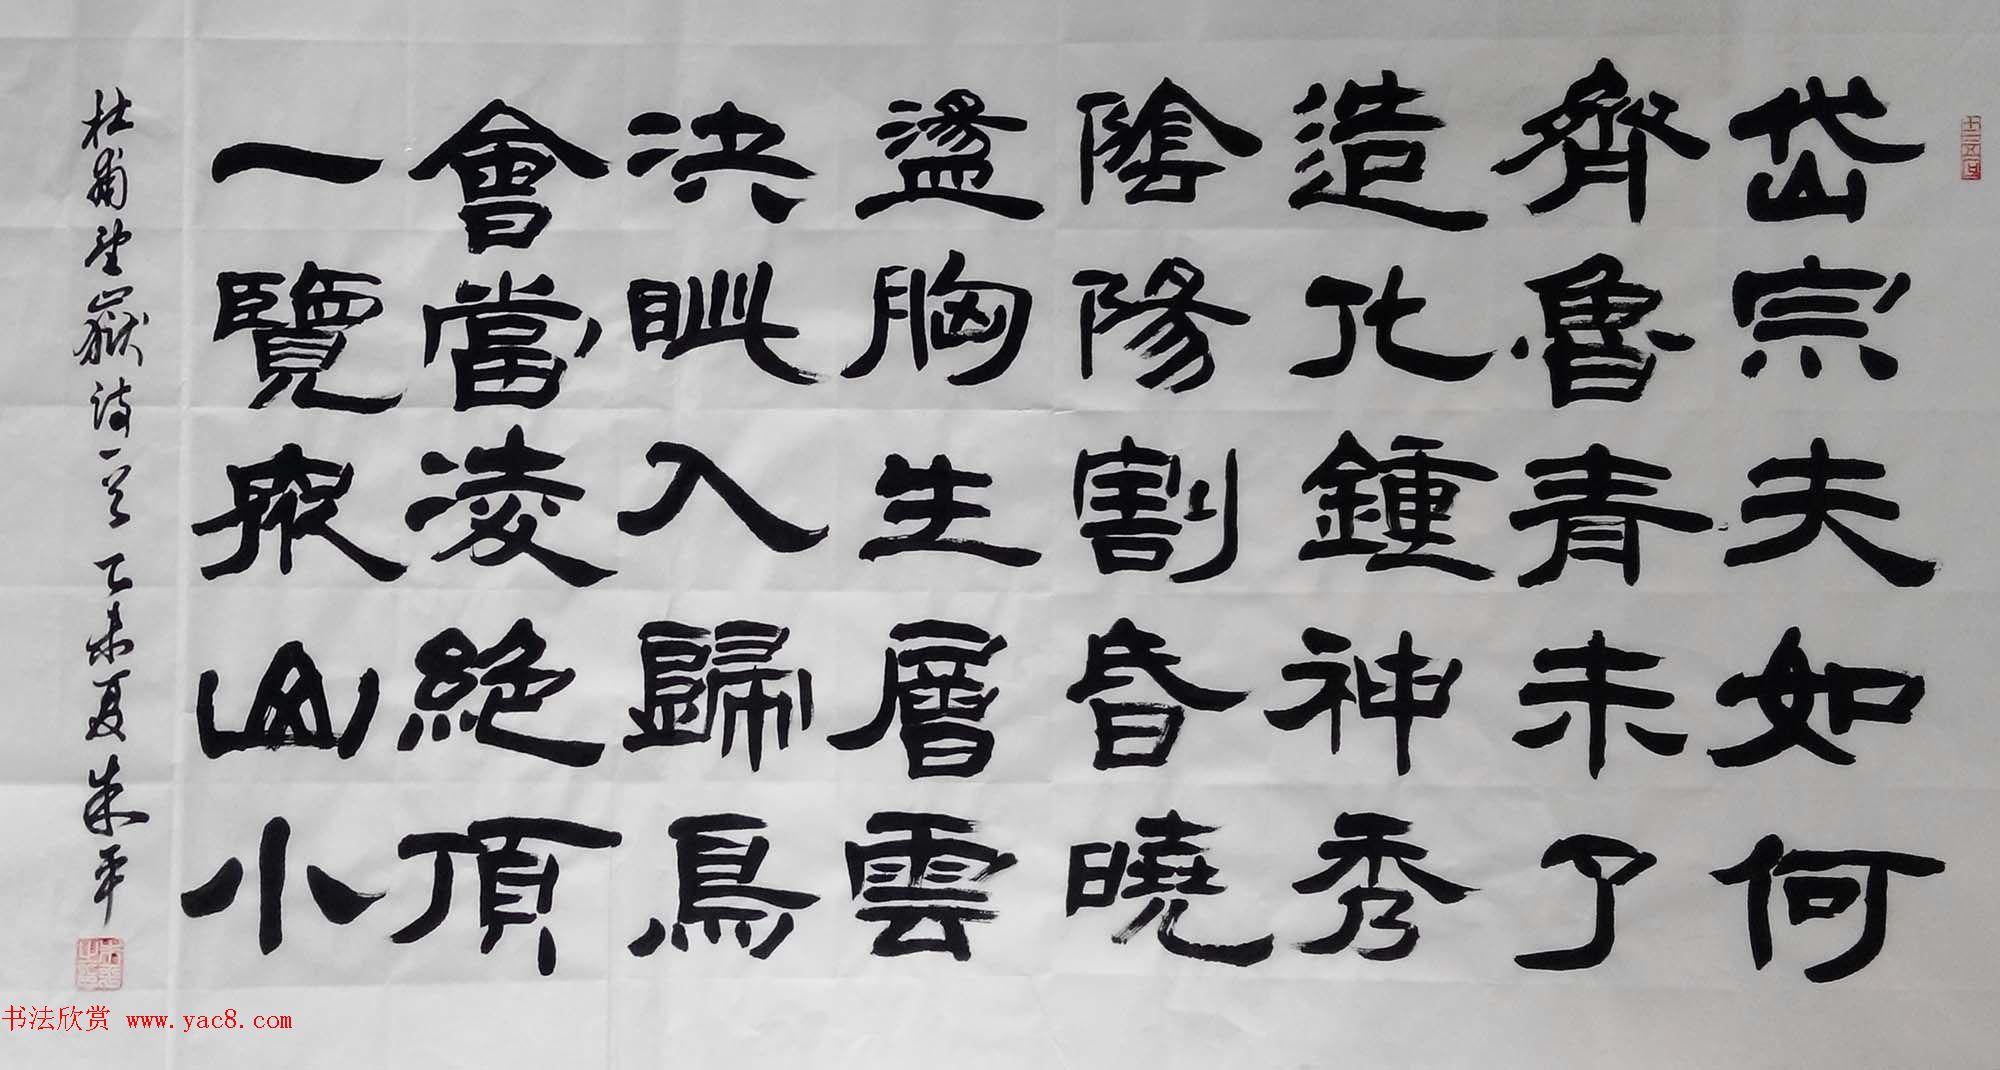 岱宗夫如何
齊魯青未了
造化鍾神秀
陰陽割昏曉
盪胸生層雲
決眥入歸鳥
會當凌絕頂
一覽眾山小
杜甫望嶽詩一首 乙未夏 朱平
书法欣赏 www.yac8.com